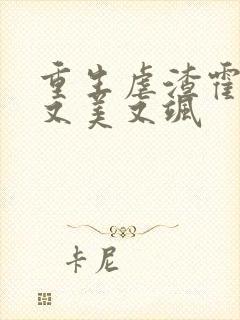 重生虐渣霍
又美又飒
卡尼